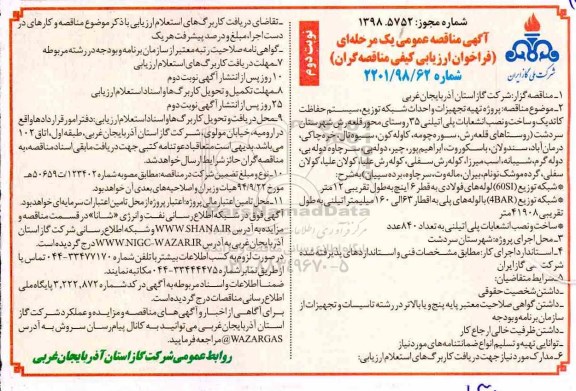 شماره مجوز: ۱۳۹۸.۵۷۵۲
آگهی مناقصه عمومی یک مرحله‌ای
(فراخوان ارزیابی کیفی مناقصه‌گران)
شماره ۲۲۰۱/۹۸/۶۲
نوبت دوم
شرکت ملی گاز ایران
۱- مناقصه گزار: شرکت گاز استان آذربایجان غربی
۲- موضوع مناقصه: پروژه تهیه تجهیزات و احداث شبکه توزیع، سیستم حفاظت
کاتدیک و ساخت و نصب انشعابات پلی اتیلنی ۳۵ روستای محور قلعه رش شهرستان
سردشت (روستاهای قلعه رش، سوره چومه، کاوله کون،
درمان آباد، سندولان، باسکوروت، ابراهیم پور، چپر، دولی بی، سرچاوه دوله بی،
دوله گرم، شیپانه، اسب میرزا، کوله رش سفلی، کوله رش علیا، کولان علیا، کولان
سفلی، گرده موشک نونم، بیران، ماله وت، سرچاوه، برده سپیان) به شرح:
* شبکه توزیع (60SI) لوله‌های فولادی به قطر ۶ اینچ به طول تقریبی ۱۲ متر
* شبکه توزیع (4BAR) با لوله‌های پلی به اقطار ۶۳ الی ۱۶۰ میلیمتر اتیلنی به طول
تقریبی ۴۱۹۰۸ متر
* ساخت و نصب انشعابات پلی اتیلنی به تعداد ۸۴۰ عدد
۳- محل اجرای پروژه: شهرستان سردشت
۴- استاندارد اجرای کار: مطابق مشخصات فنی و استانداردهای پذیرفته شده
شرکت ملی گاز ایران
۵- شرایط متقاضیان:
- داشتن شخصیت حقوقی
- داشتن گواهی صلاحیت معتبر پایه پنج و یا بالاتر در رشته تاسیسات و تجهیزات از
سازمان برنامه و بودجه
- داشتن ظرفیت خالی ارجاع کار
- توانایی تهیه و تسلیم انواع ضمانتنامه‌های مورد نیاز
۶- مدارک مورد نیاز جهت دریافت کاربرگ‌های استعلام ارزیابی:
- تقاضای دریافت کاربرگ‌های استعلام ارزیابی با ذکر موضوع مناقصه و کارهای در
دست اجرا، مبلغ و درصد پیشرفت هر یک
- گواهی نامه صلاحیت رتبه معتبر از سازمان برنامه و بودجه در رشته مربوطه
۷- مهلت دریافت کاربرگ‌های استعلام ارزیابی:
۱۰ روز پس از انتشار آگهی نوبت دوم
۸- مهلت تکمیل و تحویل کاربرگ‌ها و اسناد استعلام ارزیابی:
۲۵ روز پس از انتشار آگهی نوبت دوم
۹- محل دریافت و تحویل کاربرگ‌ها و اسناد استعلام ارزیابی: دفتر امور قراردادها واقع
در ارومیه، خیابان مولوی، شرکت گاز استان آذربایجان غربی، طبقه اول، اتاق ۱۰۲
می باشد. بدیهی است متعاقبا دعوتنامه کتبی جهت دریافت مابقی اسناد مناقصه به
مناقصه گران حائز شرایط ارسال خواهد شد.
۱۰- نوع و مبلغ تضمین شرکت در مناقصه: مطابق مصوبه شماره ۱۲۳۴۰۲/ت۵۰۶۵۹هـ
مورخ ۹۴/۹/۲۲ هیات وزیران و اصلاحیه‌های بعدی آن خواهد بود.
۱۱- محل تامین اعتبار مالی پروژه: اعتبار پروژه از محل تامین اعتبارات سرمایه‌ای خواهد بود.
آگهی فوق در شبکه اطلاع رسانی نفت و انرژی «شانا» در قسمت مناقصه و
مزایده به آدرس WWW.SHANA.IR و شبکه اطلاع رسانی شرکت گاز استان
آذربایجان غربی به آدرس WWW.NIGC-WAZAR.IR درج گردیده است.
در صورت لزوم به کسب اطلاعات بیشتر با تلفن شماره ۳۳۴۷۷۱۷۰-۰۴۴ تماس و یا
از طریق نمابر شماره ۳۳۴۴۴۴۷۵-۰۴۴ مکاتبه نمایند.
ضمنا اطلاعات و اسناد مربوطه به آگهی در کد شماره ۳,۲۲۲,۸۷۲ پایگاه ملی
اطلاع رسانی مناقصات درج گردیده است.
برای آگاهی از اخبار و آگهی های مناقصه و مزایده و عملکرد شرکت گاز
استان آذربایجان غربی می توانید به کانال پیام رسان سروش به آدرس
WAZARGAS@ مراجعه فرمایید.
روابط عمومی شرکت گاز استان آذربایجان غربی